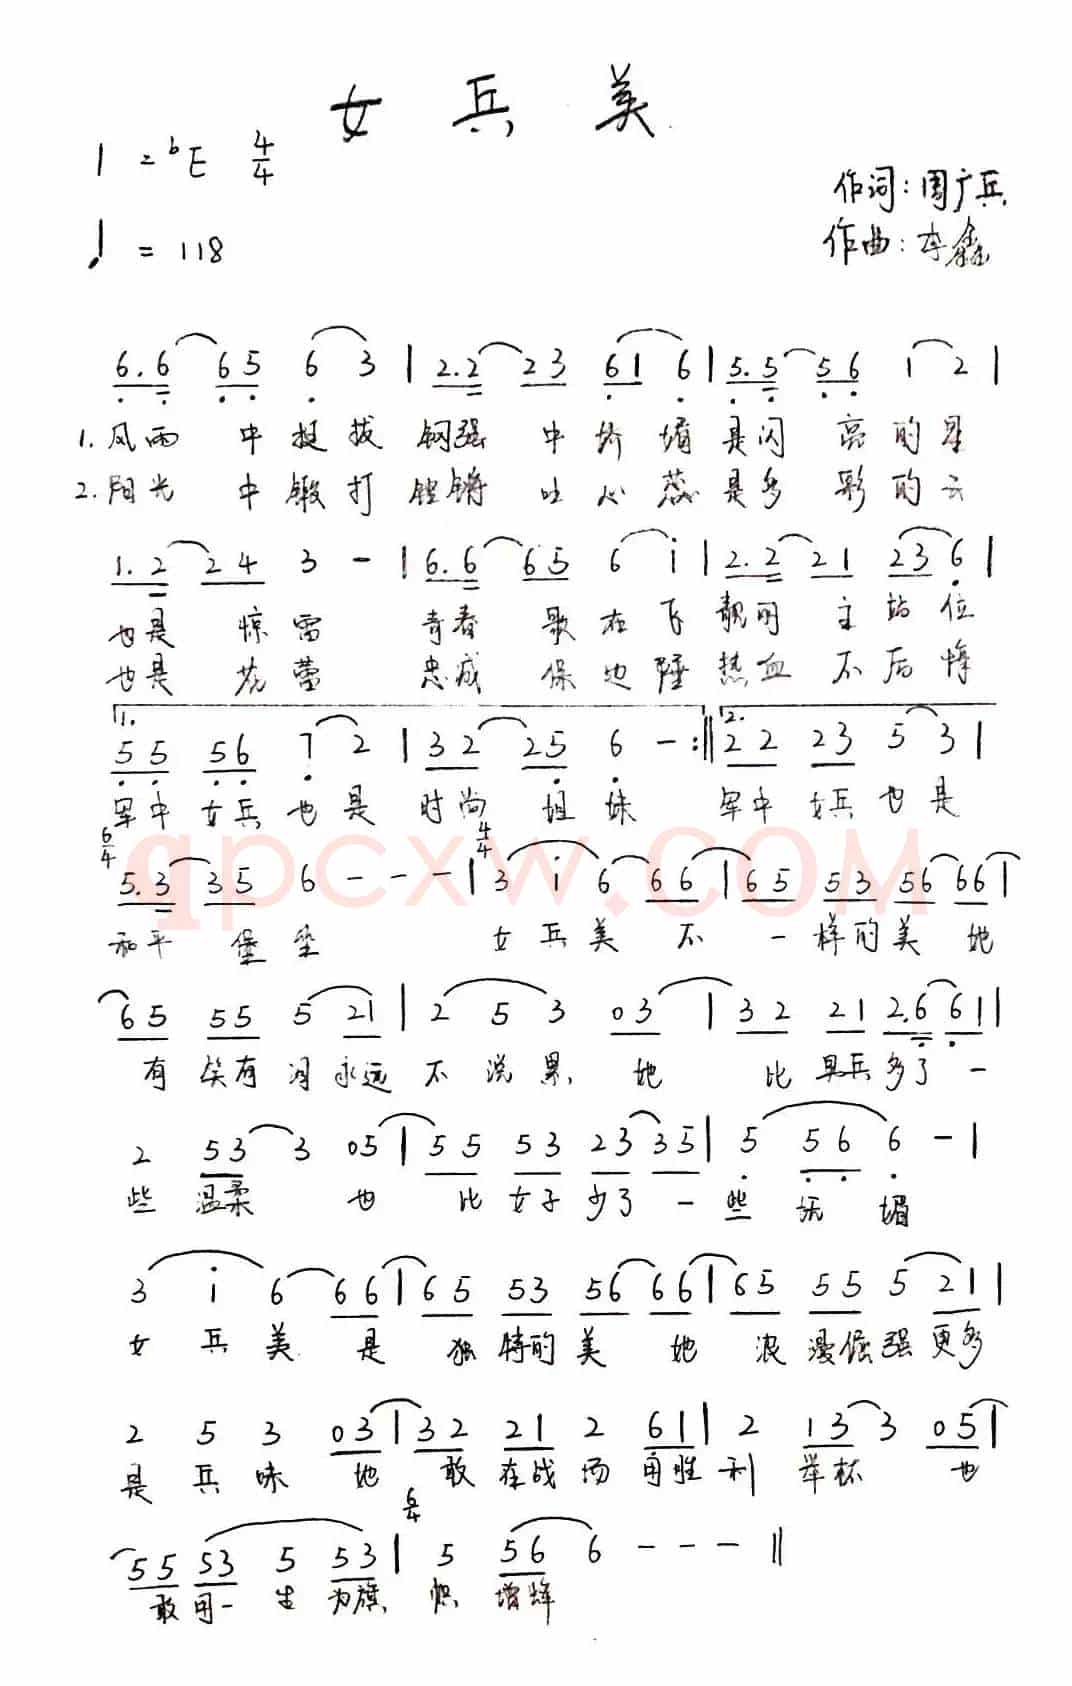 女兵美
1=ᵇE 4/4
作词：周广兵
♩=118
作曲：李鑫
6.6 65 6 3 | 2.2 23 61 6 | 5.5 56 1 2 |
1. 风雨 中挺拔 钢强 中娇媚 是闪 亮的星
2. 阳光 中锻打 铿锵 吐心蕊 是多 彩的云
1.2 24 3 - | 6.6 65 6 i | 2.2 21 23 6 |
也是 惊雷 青春 歌在飞 靓丽 主站位
也是 花蕾 忠诚 保边陲 热血 不后悔
1. 2.
55 56 7 2 | 32 25 6 - :‖ 22 23 5 3 |
军中 女兵 也是 时尚 姐妹 军中 女兵 也是
6/4 4/4
5.3 35 6 - - - | 3 i 6 66 | 65 53 56 66 |
和平 堡垒 女兵美 不一样的美 她
65 55 5 21 | 2 5 3 03 | 32 21 2.6 61 |
有笑有泪永远不说累 她 比男兵多了一
2 53 3 05 | 55 53 23 35 | 5 56 6 - |
些 温柔 也 比女子少了一些 妩媚
3 i 6 66 | 65 53 56 66 | 65 55 5 21 |
女兵美 是 独特的美 她 浪漫倔强更多
2 5 3 03 | 32 21 2 61 | 2 13 3 05 |
是兵味 她 敢在战场 用胜利 举杯 也
6/4
55 53 5 53 | 5 56 6 - - - ‖
敢用一生为旗帜 增辉
qpcxw.COM